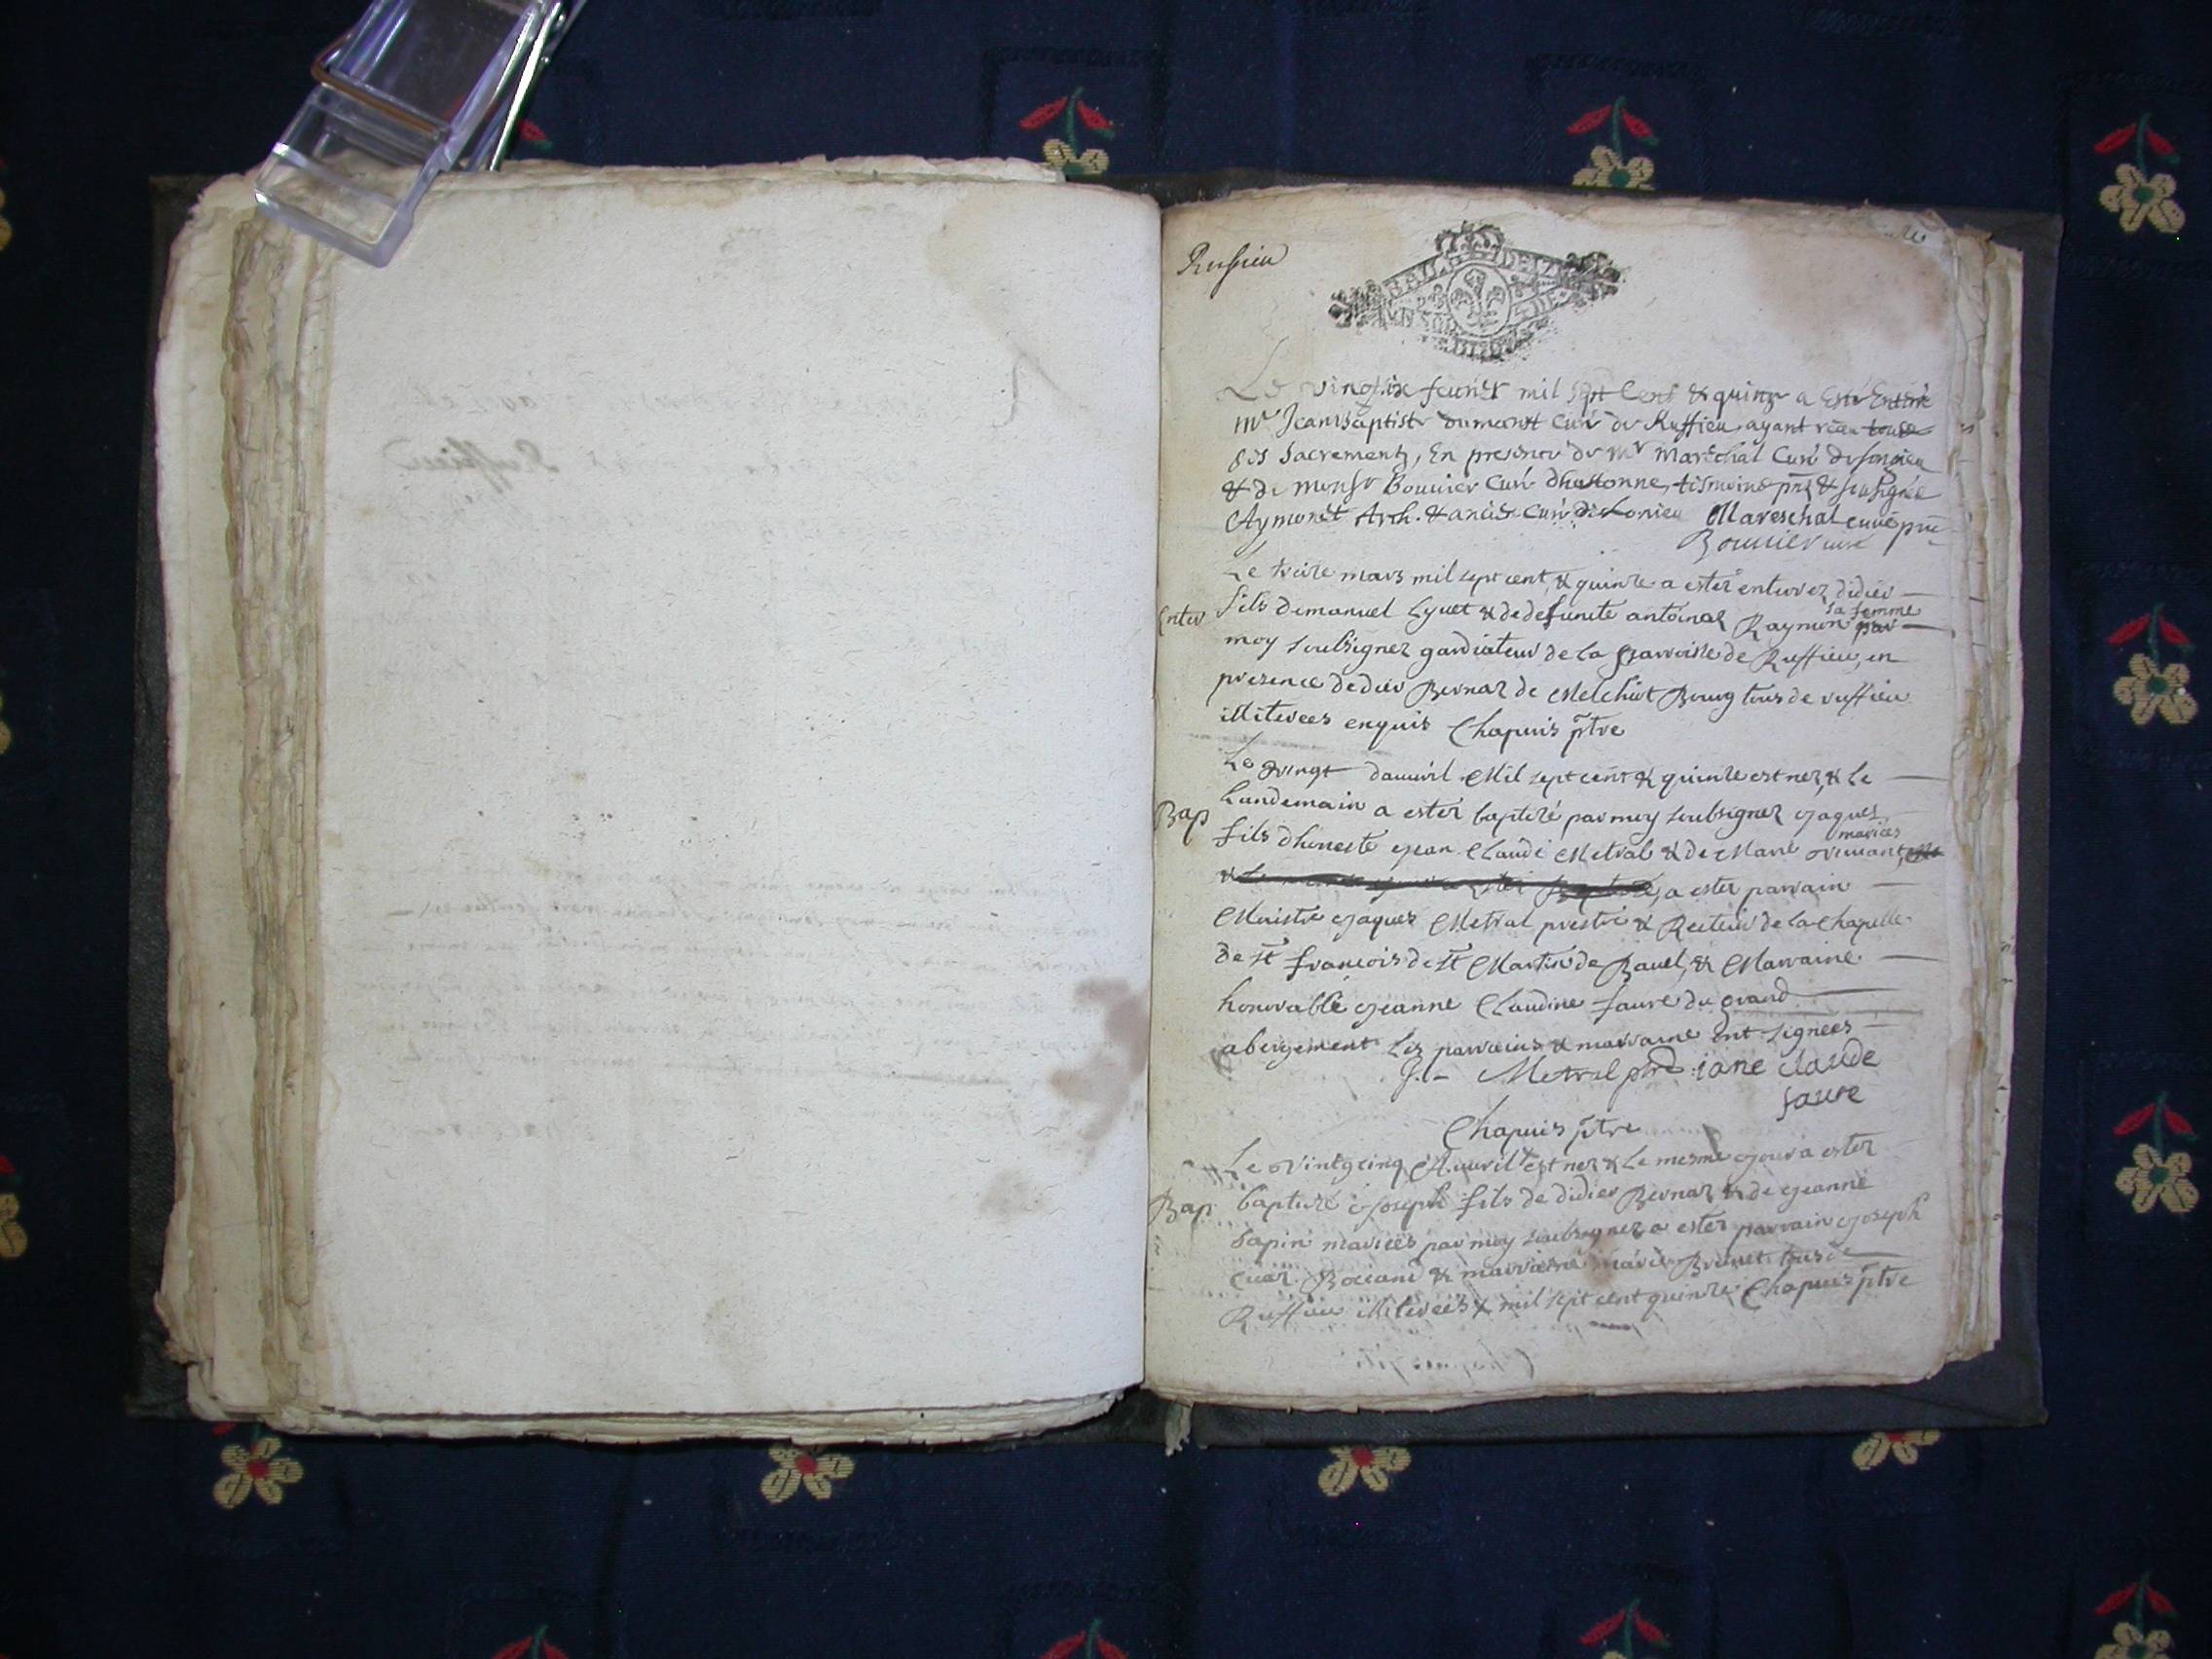 Ruffieu
Le vingt six feurier mil sept Cent & quinze a Esté Enterré
Mr Jean Baptiste dumont Curé de Ruffieu ayant receu tous
ses Sacrements, En presence de Mr Maréchal Curé de songieu
& de Monsr Bouuier Curé dhostonne, tesmoins pnts & soubsignés
Aymonet Arch. & ancie Curé de Lonieu Mareschal curé pnt
Bouuier curé
Le treize mars mil sept cent & quinze a ester enterrez didier
Enter
fils demanuel Lyuet & de defunete antoinaz Raymon sa femme par
moy soubsignez gardiateur de la parroisse de Ruffieu, en
presence de dier Bernaz de Melchiot Bourg tous de ruffieu
illiterees enquis Chapuis ptre
Le vingt dauuril Mil sept cent & quinze est nez, & le
Bap
Lundemain a ester baptizé par moy soubsignez Jaques
fils dhoneste Jean Claude Metral & de Marie mariees
&
a ester parrain
Maistre Jaques Metral prestre & Recteur de la Chapelle
de st francois de st Martin de Bauel, & Marraine
honorable Jeanne Claudine faure du grand
abergement Les parrains & marraine ont signees
J. Metral ptre iane claude
faure
Chapuis ptre
Le vintgcinq Auuril est nez & le mesme Jour a ester
Bap
baptizé Joseph fils de didier Bernaz & de Jeanne
sapin mariees par moy soubsignez a ester parrain Joseph
Bociand & marraine marie Brunet tous de
Ruffieu illiterees & mil sept cent quinze Chapuis ptre